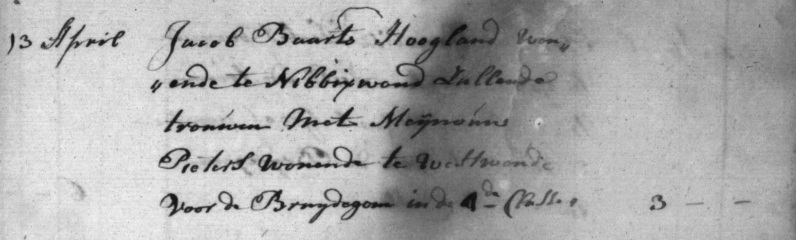 13 April Jacob Baarts Hoogland Won„
„ende te Nibbixwoud Zullende
trouwen Met Meijnouw
Pieters wonende te Westwoude
voor de Bruydegom in de 4de Classe 3 – –